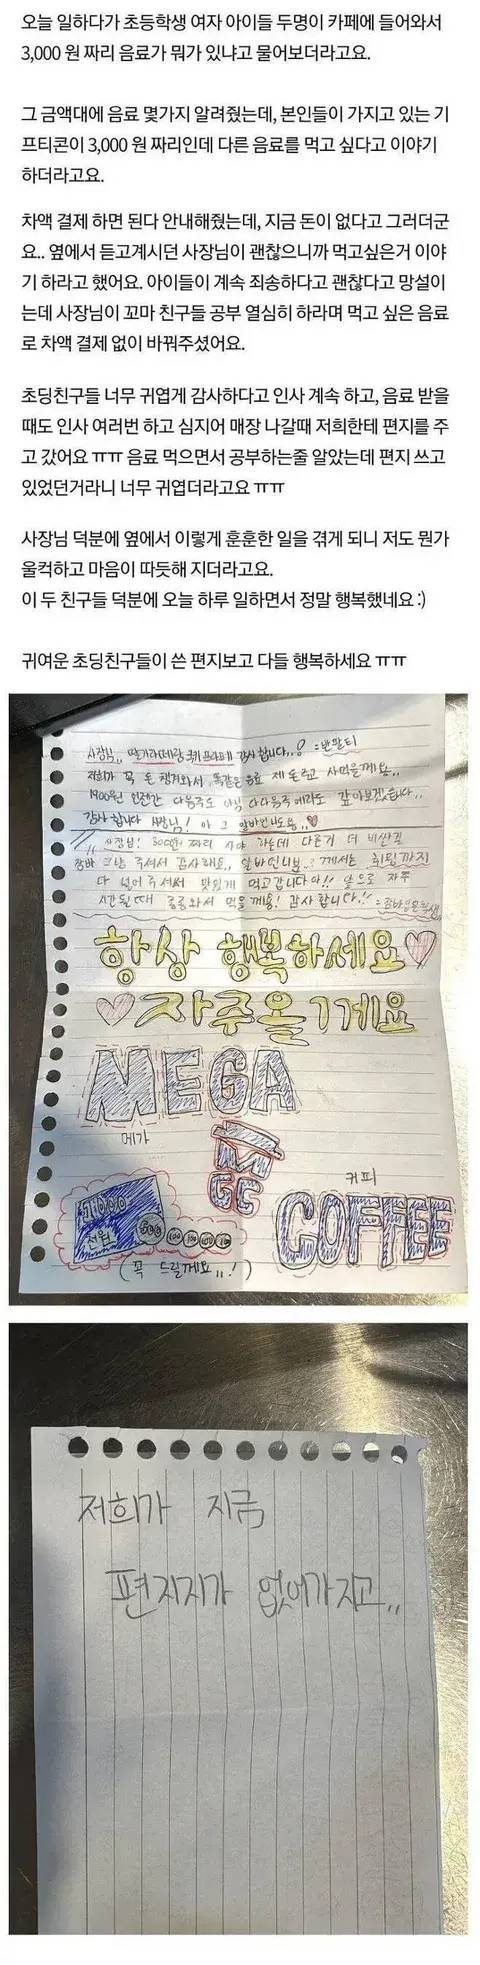 오늘 일하다가 초등학생 여자 아이들 두명이 카페에 들어와서
3,000 원 짜리 음료가 뭐가 있냐고 물어보더라고요.
그 금액대에 음료 몇가지 알려줬는데, 본인들이 가지고 있는 기
프티콘이 3,000 원 짜리인데 다른 음료를 먹고 싶다고 이야기
하더라고요.
차액 결제 하면 된다 안내해줬는데, 지금 돈이 없다고 그러더군
요.. 옆에서 듣고계시던 사장님이 괜찮으니까 먹고싶은거 이야
기 하라고 했어요. 아이들이 계속 죄송하다고 괜찮다고 망설이
는데 사장님이 꼬마 친구들 공부 열심히 하라며 먹고 싶은 음료
로 차액 결제 없이 바꿔주셨어요.
초딩친구들 너무 귀엽게 감사하다고 인사 계속 하고, 음료 받을
때도 인사 여러번 하고 심지어 매장 나갈때 저희한테 편지를 주
고 갔어요 ㅠㅠ 음료 먹으면서 공부하는줄 알았는데 편지 쓰고
있었던거라니 너무 귀엽더라고요 ㅠㅠ
사장님 덕분에 옆에서 이렇게 훈훈한 일을 겪게 되니 저도 뭔가
울컥하고 마음이 따듯해 지더라고요.
이 두 친구들 덕분에 오늘 하루 일하면서 정말 행복했네요 :)
귀여운 초딩친구들이 쓴 편지보고 다들 행복하세요 ㅠㅠ
사장님.. 딸기라떼랑 쿠키프라페 감사합니다..!
저희가 꼭 돈 챙겨와서, 똑같은 음료 제 돈주고 사먹을께요..
1900원 언젠간 다음주도 아님 다다음주에라도 갚아보겠습니다..
감사합니다 사장님! 아 그 알바언니도용..♥
사장님! 3000원 짜리 사야 하는데 다른거 더 비싼걸
그냥 주셔서 감사해요.. 알바언니분..? 께서는 휘핑까지
다 넣어 주셔서 맛있게 먹고갑니다아!! 앞으로 자주
시간될때 종종와서 먹을께용! 감사합니다!!
항상 행복하세요♡
♡자주올게요
MEGA
메가
M
GC
커피
COFFEE
1000
천원
500 100 100 100 100
( 꼭 드릴께요,,! )
저희가 지금
편지지가 없어가지고..